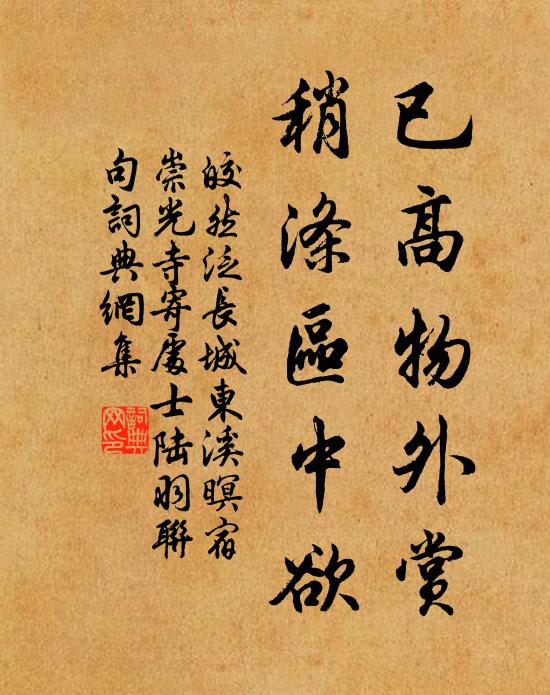 已高物外賞
稍滌區中欲
皎然泛長城東溪暝宿
崇光寺寄處士陆羽聯
句詞典網集
詞典
网印